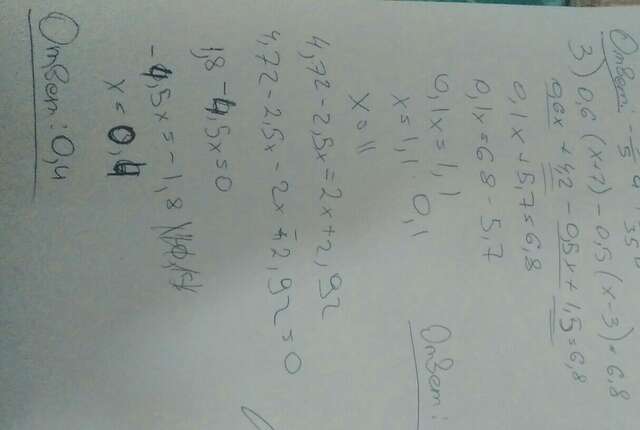 Ответ:
3) 0,6(x+7)-0,5(x-3)=6,8
0,6x+4,2-0,5x+1,5=6,8
0,1x+5,7=6,8
0,1x=6,8-5,7
0,1x=1,1
x=1,1:0,1
x=11
Ответ:
4,72-2,5x=2x+2,92
4,72-2,5x-2x-2,92=0
1,8-4,5x=0
-4,5x=-1,8
x=0,4
Ответ:0,4